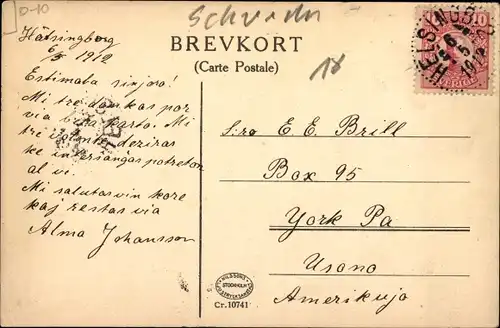 D-10
BREVKORT
(Carte Postale)
10
18
HELSINGBORG
Hälsingborg
6/5 1912
Estimata sinjoro!
Mi tre dankas por
via bela karto. Mi
tre volonte deziras
ke intersanĝas potreton
al vi.
Mi salutas vin kore
kaj restas via
Alma Johansson
S:ro E. E. Brill
Box 95
York Pa
Usono
Amerikujo
STOCKHOLM
Cr. 10741